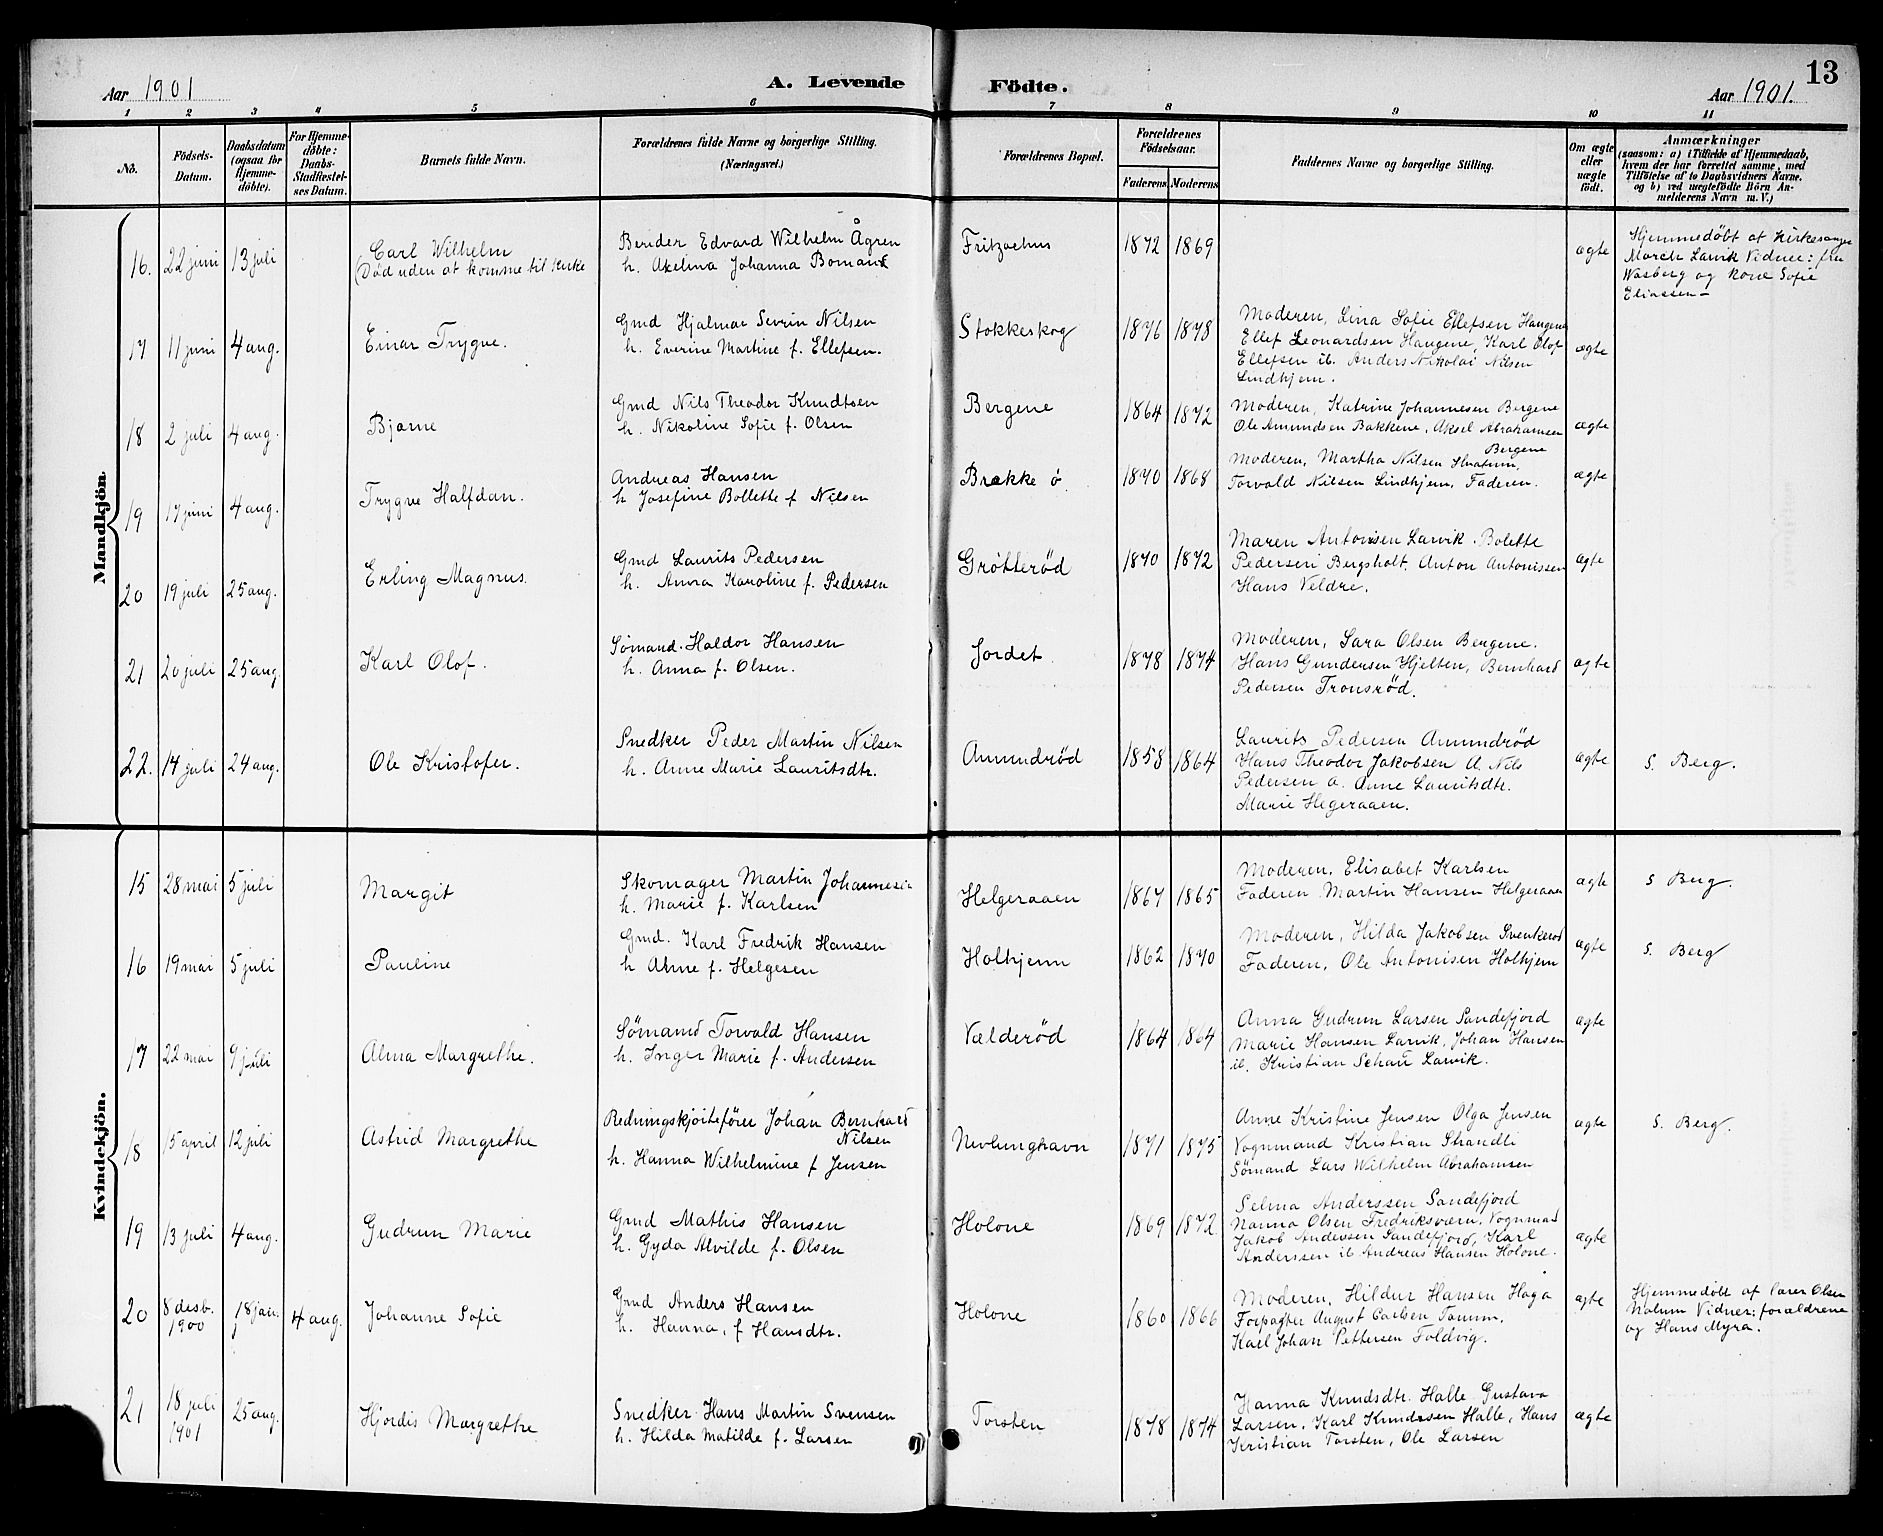 Aar 1901
A. Levende
Födte.
Aar 1901.
13
1 2 3 4 5 6 7 8 9 10 11
No.
Födsels-Datum.
Daabsdatum (ogsaa for Hjemme-döbte).
For Hjemme-döbte: Daabs-Stadfæstel-ses Datum.
Barnets fulde Navn.
Forældrenes fulde Navne og borgerlige Stilling. (Næringsvei.)
Forældrenes Bopæl.
Forældrenes Födselsaar.
Faderens Moderens
Faddernes Navne og borgerlige Stilling.
Om ægte eller uægte födt.
Anmærkninger
(saasom: a) i Tilfælde af Hjemmedaab, hvem der har forrettet samme, med Tilföielse af to Daabsvidners Navne. og b) ved uægtefödte Börn An-melderens Navn m. V.)
Mandkjön.
16. 22 juni 13 juli
Carl Wilhelm
(Död uden at komme til kirke
Bender Edvard Wilhelm Ågren
h. Axelina Johanna Boman
Fritzøehus 1872 1869 ægte
Hjemmedöbt af Kirkesanger
March Larvik Vidner: fru
Wasberg og kone Sofie
Eliassen
17 11 juni 4 aug.
Einar Trygve.
Gmd Hjalmar Sevrin Nilsen
h. Everine Martine f. Ellefsen.
Stokkeskog 1876 1878
Moderen, Lina Sofie Ellefsen Haugene
Ellef Leonardsen Haugene, Karl Olof
Ellefsen ib. Anders Nikolai Nilsen
Lindhjem.
ægte
18 2 juli 4 aug.
Bjarne
Gmd Nils Theodor Knudtsen
h. Nikoline Sofie f. Olsen
Bergene 1864 1872
Moderen, Katrine Johannesen Bergene
Ole Amundsen Bakkene, Aksel Abrahamsen
Bergene
ægte
19 17 juni 4 aug.
Trygve Halfdan.
Andreas Hansen
h Josefine Bollette f Nilsen
Brække ö. 1870 1868
Moderen, Martha Nilsen Hvatum,
Torvald Nilsen Lindhjem, Faderen.
ægte
20 19 juli 25 aug.
Erling Magnus.
Gmd Laurits Pedersen
h. Anna Karoline f. Pedersen
Gröttteröd 1870 1872
Maren Antonsen Larvik. Bolette
Pedersen Bergsholt. Anton Antonissen
Hans Veldre.
ægte
21 20 juli 25 aug.
Karl Olof.
Sömand. Haldor Hansen
h. Anna f. Olsen.
Jordet 1878 1874
Moderen, Sara Olsen Bergene.
Hans Gundersen Hjelten, Bernhard
Pedersen Tronsröd.
ægte
22. 14 juli 24 aug.
Ole Kristofer.
Snedker Peder Martin Nilsen
h. Anne Marie Lauritsdtr.
Amundröd 1858 1864
Laurits Pedersen Amundröd
Hans Theodor Jakobsen A. Nils
Pedersen a. Anne Lauritsdtr.
Marie Helgeraaen.
ægte S. Berg.
Kvindekjön.
15 28 mai 5 juli
Margit
Skomager Martin Johannesen
h. Marie f. Karlsen
Helgeraaen 1867 1865
Moderen, Elisabet Karlsen
Faderen Martin Hansen Helgeraaen
ægte S Berg.
16 19 mai 5 juli
Pauline
Gmd. Karl Fredrik Hansen
h Anne f. Helgesen
Holhjem 1862 1870
Moderen, Hilda Jakobsen Svenkeröd
Faderen, Ole Antonisen Holhjem
ægte S. Berg
17 22 mai 9 juli
Alma Margrethe.
Sömand Torvald Hansen
h. Inger Marie f. Andersen
Vælderöd 1864 1864
Anna Gudrun Larsen Sandefjord
Marie Hansen Larvik, Johan Hansen
ib. Kristian Schau Larvik.
ægte
18 15 april 12 juli
Astrid Margrethe
Redningskjöitefører Johan Bernhard
Nilsen
h. Hanna Wilhelmine f Jensen
Nevlunghavn 1871 1875
Anne Kristine Jensen Olga Jensen
Vognmand Kristian Strandli
Sömand Lars Wilhelm Abrahamsen
ægte S. Berg.
19 13 juli 4 aug.
Gudrun Marie
Gmd Mathis Hansen
h. Gyda Alvilde f. Olsen
Holone 1869 1872
Selma Anderssen Sandefjord
Nanna Olsen Fredriksværn, Vognmand
Jakob Andersen Sandefjord, Karl
Anderssen ib Andreas Hansen Holone.
ægte
20 8 desb. 1900 18 jan. 4 aug.
Johanne Sofie
Gmd Anders Hansen
h. Hanna, f Hansdtr.
Holone 1860 1866
Moderen, Hildur Hansen Haga
Forpagter August Carlsen Tamm.
Karl Johan Pettersen Foldvig.
ægte
Hjemmedöbt af lærer Olsen
Nalum Vidner: forældrene
og Hans Myra.
21 18 juli 1901 25 aug.
Hjordis Margrethe
Snedker Hans Martin Svensen
h. Hilda Matilde f. Larsen
Torsten 1878 1874
Hanna Knudsdtr. Halle Gustava
Larsen, Karl Knudsen Halle, Hans
Kristian Torsten, Ole Larsen
ægte